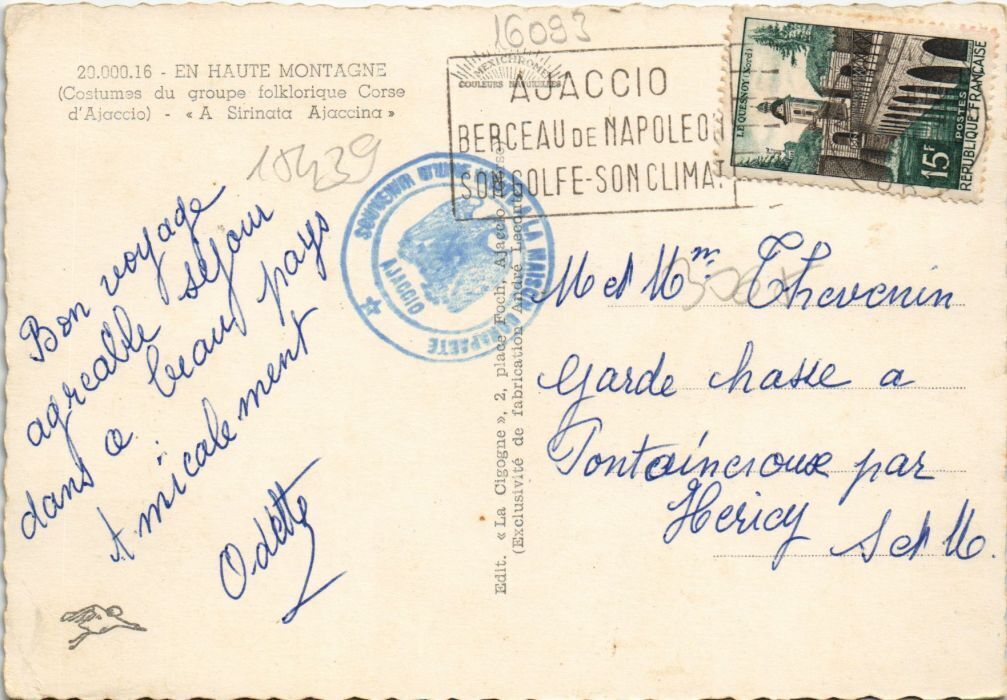 16093
20.000.16 - EN HAUTE MONTAGNE
(Costumes du groupe folklorique Corse
d'Ajaccio) - « A Sirinata Ajaccina »
MEXICHROME
COULEURS NATURELLES
AJACCIO
BERCEAU DE NAPOLEON
SON GOLFE-SON CLIMAT
LE QUESNOY (Nord)
15F
POSTES
REPUBLIQUE FRANÇAISE
10439
SOUVENIR D'UNE VISITE A LA MAISON BONAPARTE
AJACCIO
Bon voyage
agreable séjour
dans a beau pays
Amicalement
Odette
Edit. « La Cigogne », 2, place Foch, Ajaccio (Corse)
(Exclusivité de fabrication André Leconte)
M et Mme Thevenin
Garde chasse a
Fontaineroux par
Hericy S et M.